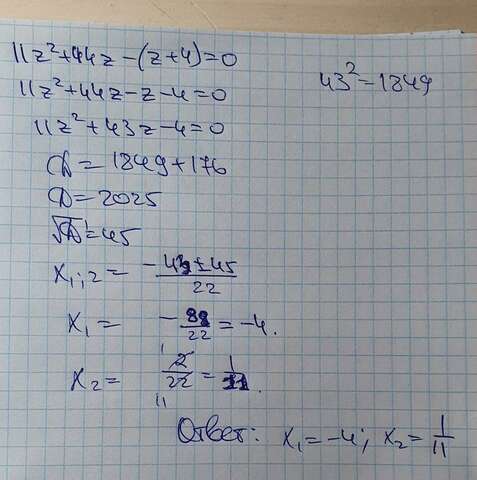 11z²+44z-(z+4)=0
43²=1849
11z²+44z-z-4=0
11z²+43z-4=0
D=1849+176
D=2025
√D=45
x₁;₂= -43±45/22
x₁= -88/22=-4.
x₂= 2/22=1/11.
1
11
Ответ: x₁=-4; x₂=1/11